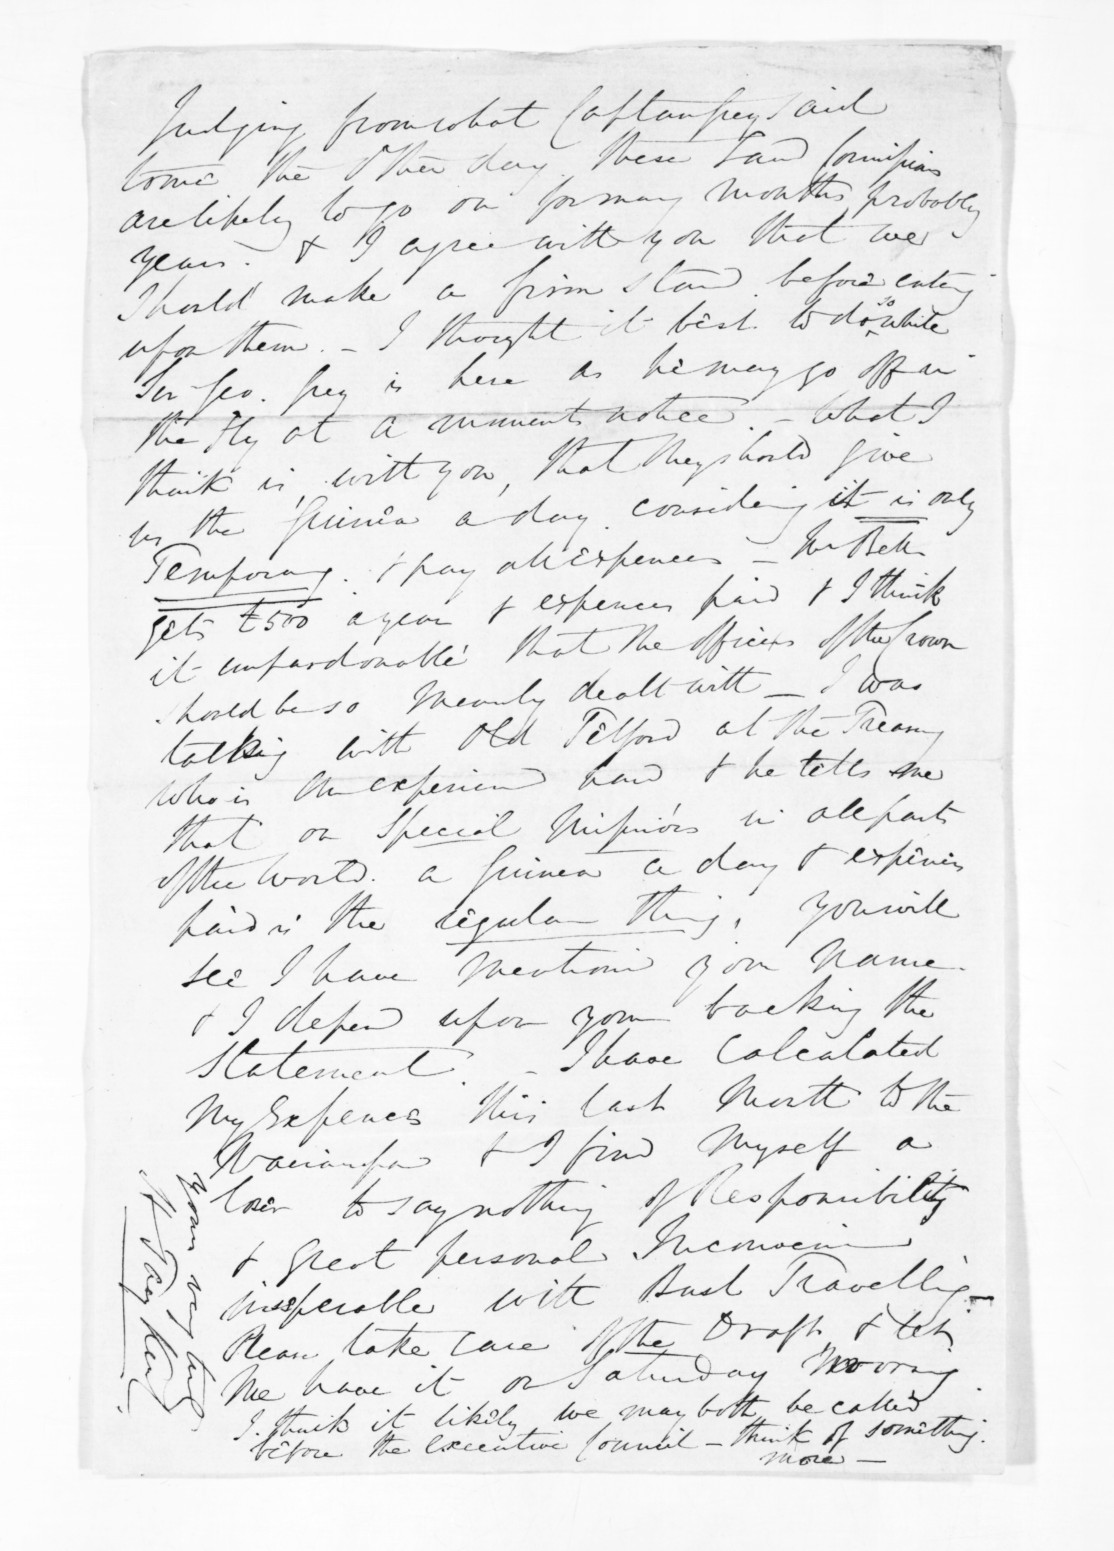 Judging from what Captain Grey said
to me the other day these Land Commissions
are likely to go on for many months, probably
years. & I agree with you that we
should make a firm stand before entering
upon them. - I thought it best to do so while
Sir Geo. Grey is here as he may go off in
the Fly at a moments notice. - What I
think is, with you, that they should give
us the Guinea a day. considering it is only
Temporary. & pay all Expences - Mr Bell
gets £500 a year & expences paid & I think
it unpardonable that the officers of the Crown
should be so meanly dealt with - I was
talking with Old Telford at the Treasury
who is an experienced hand & he tells me
that on Special Missions in all parts
of the World. a Guinea a day & expences
paid is the regular thing. You will
see I have mentioned your name.
& I depend upon your backing the
Statement. - I have calculated
My Expences this last Month to the
Wairarapa & I find Myself a
loser to say nothing of Responsibility
& great personal Inconvenience
inseperable with Bush Travelling -
Please take care of the Draft & let
me have it on Saturday Morning.
I think it likely we may both be called
before the Executive Council - think of something
more -
Yours very truly
H Tacy Kemp